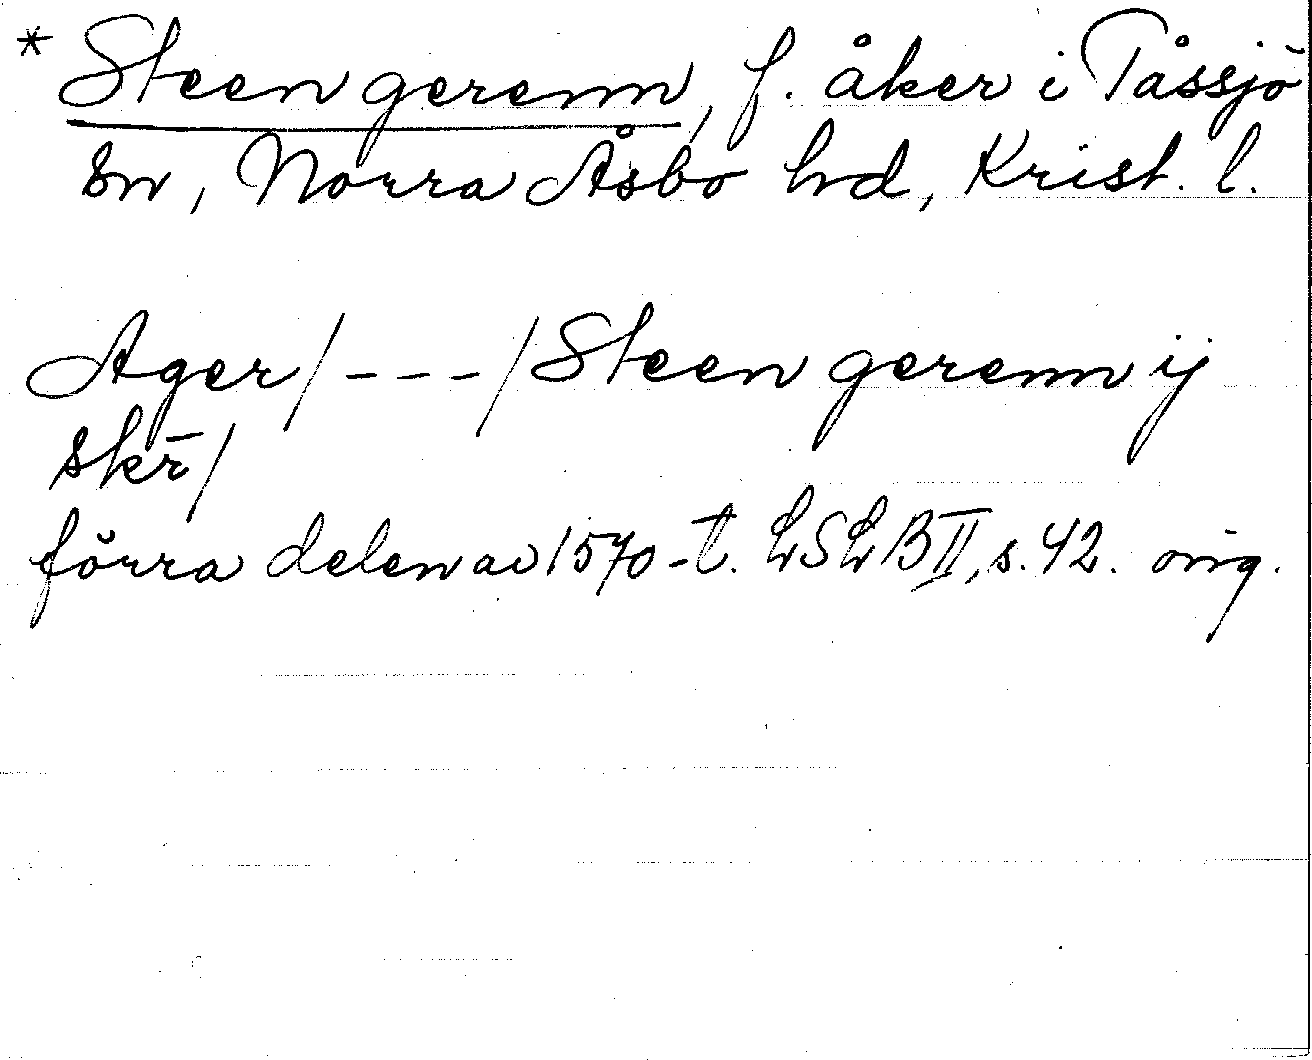 * Steen gerenn, f. åker i Tåssjö
sn, Norra Åsbo hd, Krist. l.
Ager/---/Steen gerenn ij
skr̄/
förra delen av 1570-t. LSLB II, s. 42. orig.